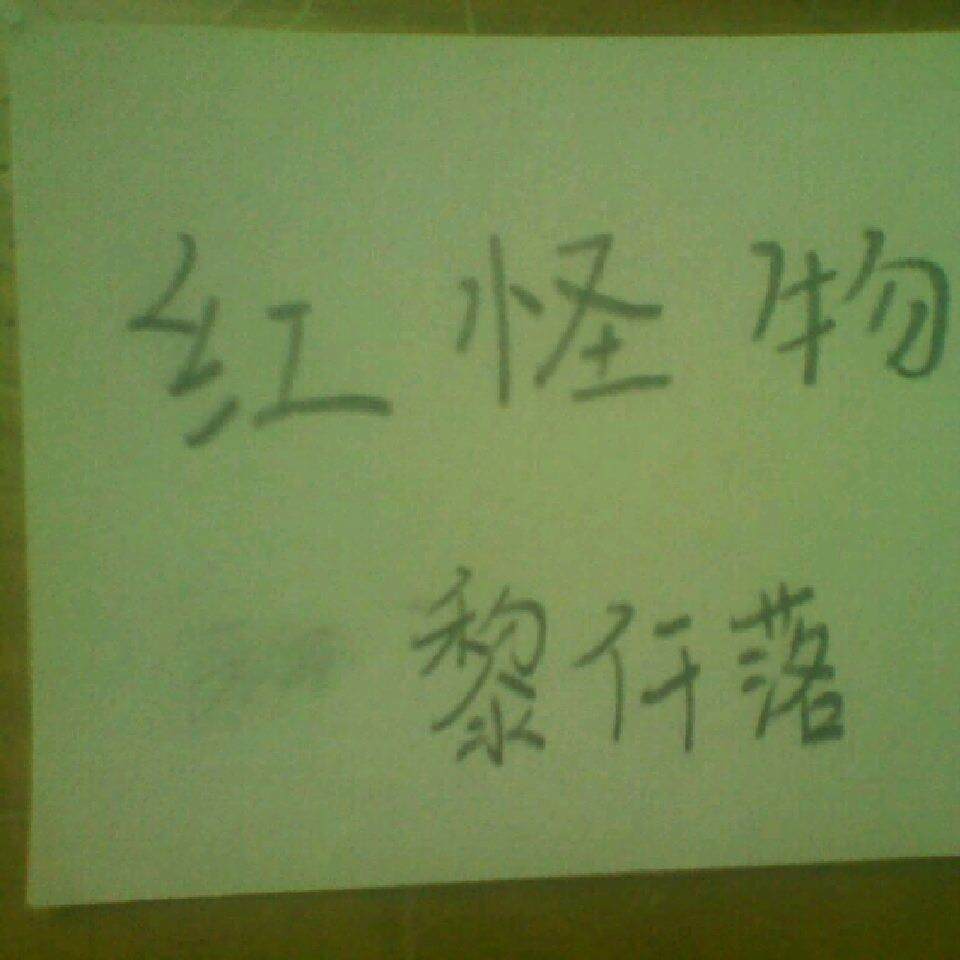 红怪物
黎仟落